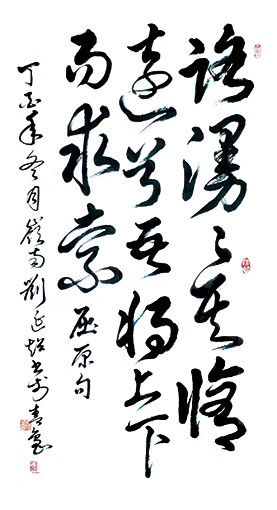 路漫漫其修
远兮吾将上下
而求索 屈原句
丁酉年冬月岭南刘延